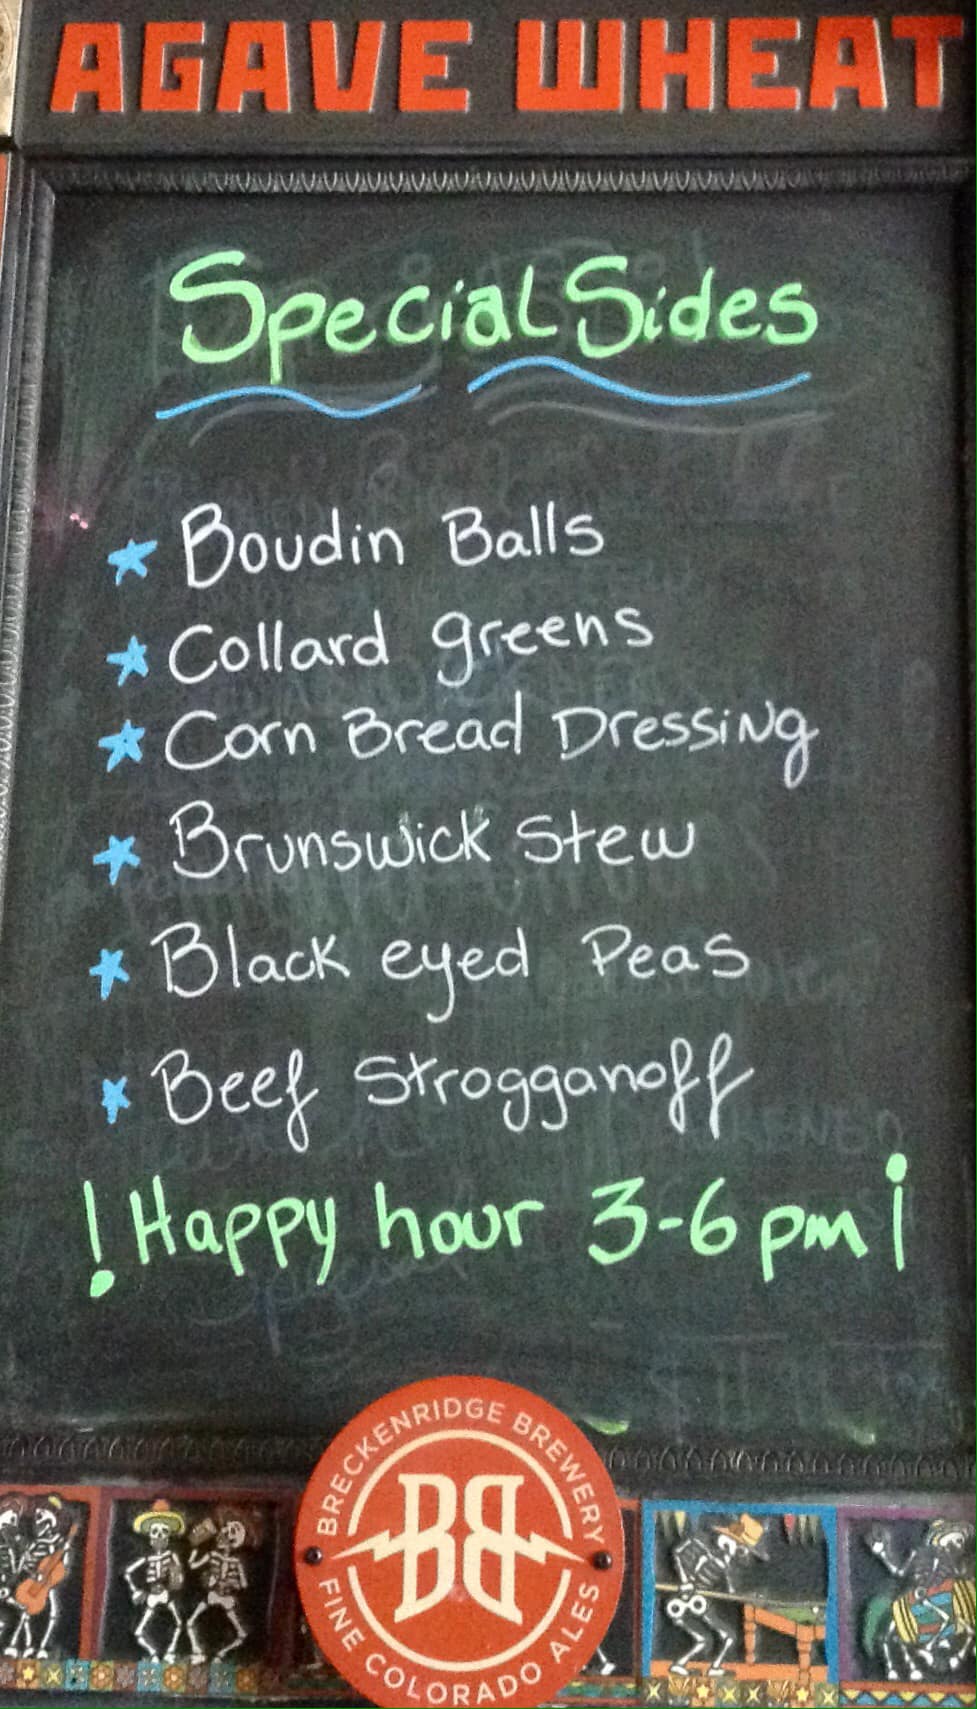 AGAVE WHEAT
Special Sides
Boudin Balls
Collard greens
Corn Bread Dressing
Brunswick Stew
Black eyed Peas
Beef Strogganoff
! Happy hour 3-6 pm ¡
BRECKENRIDGE BREWERY
BB
FINE COLORADO ALES